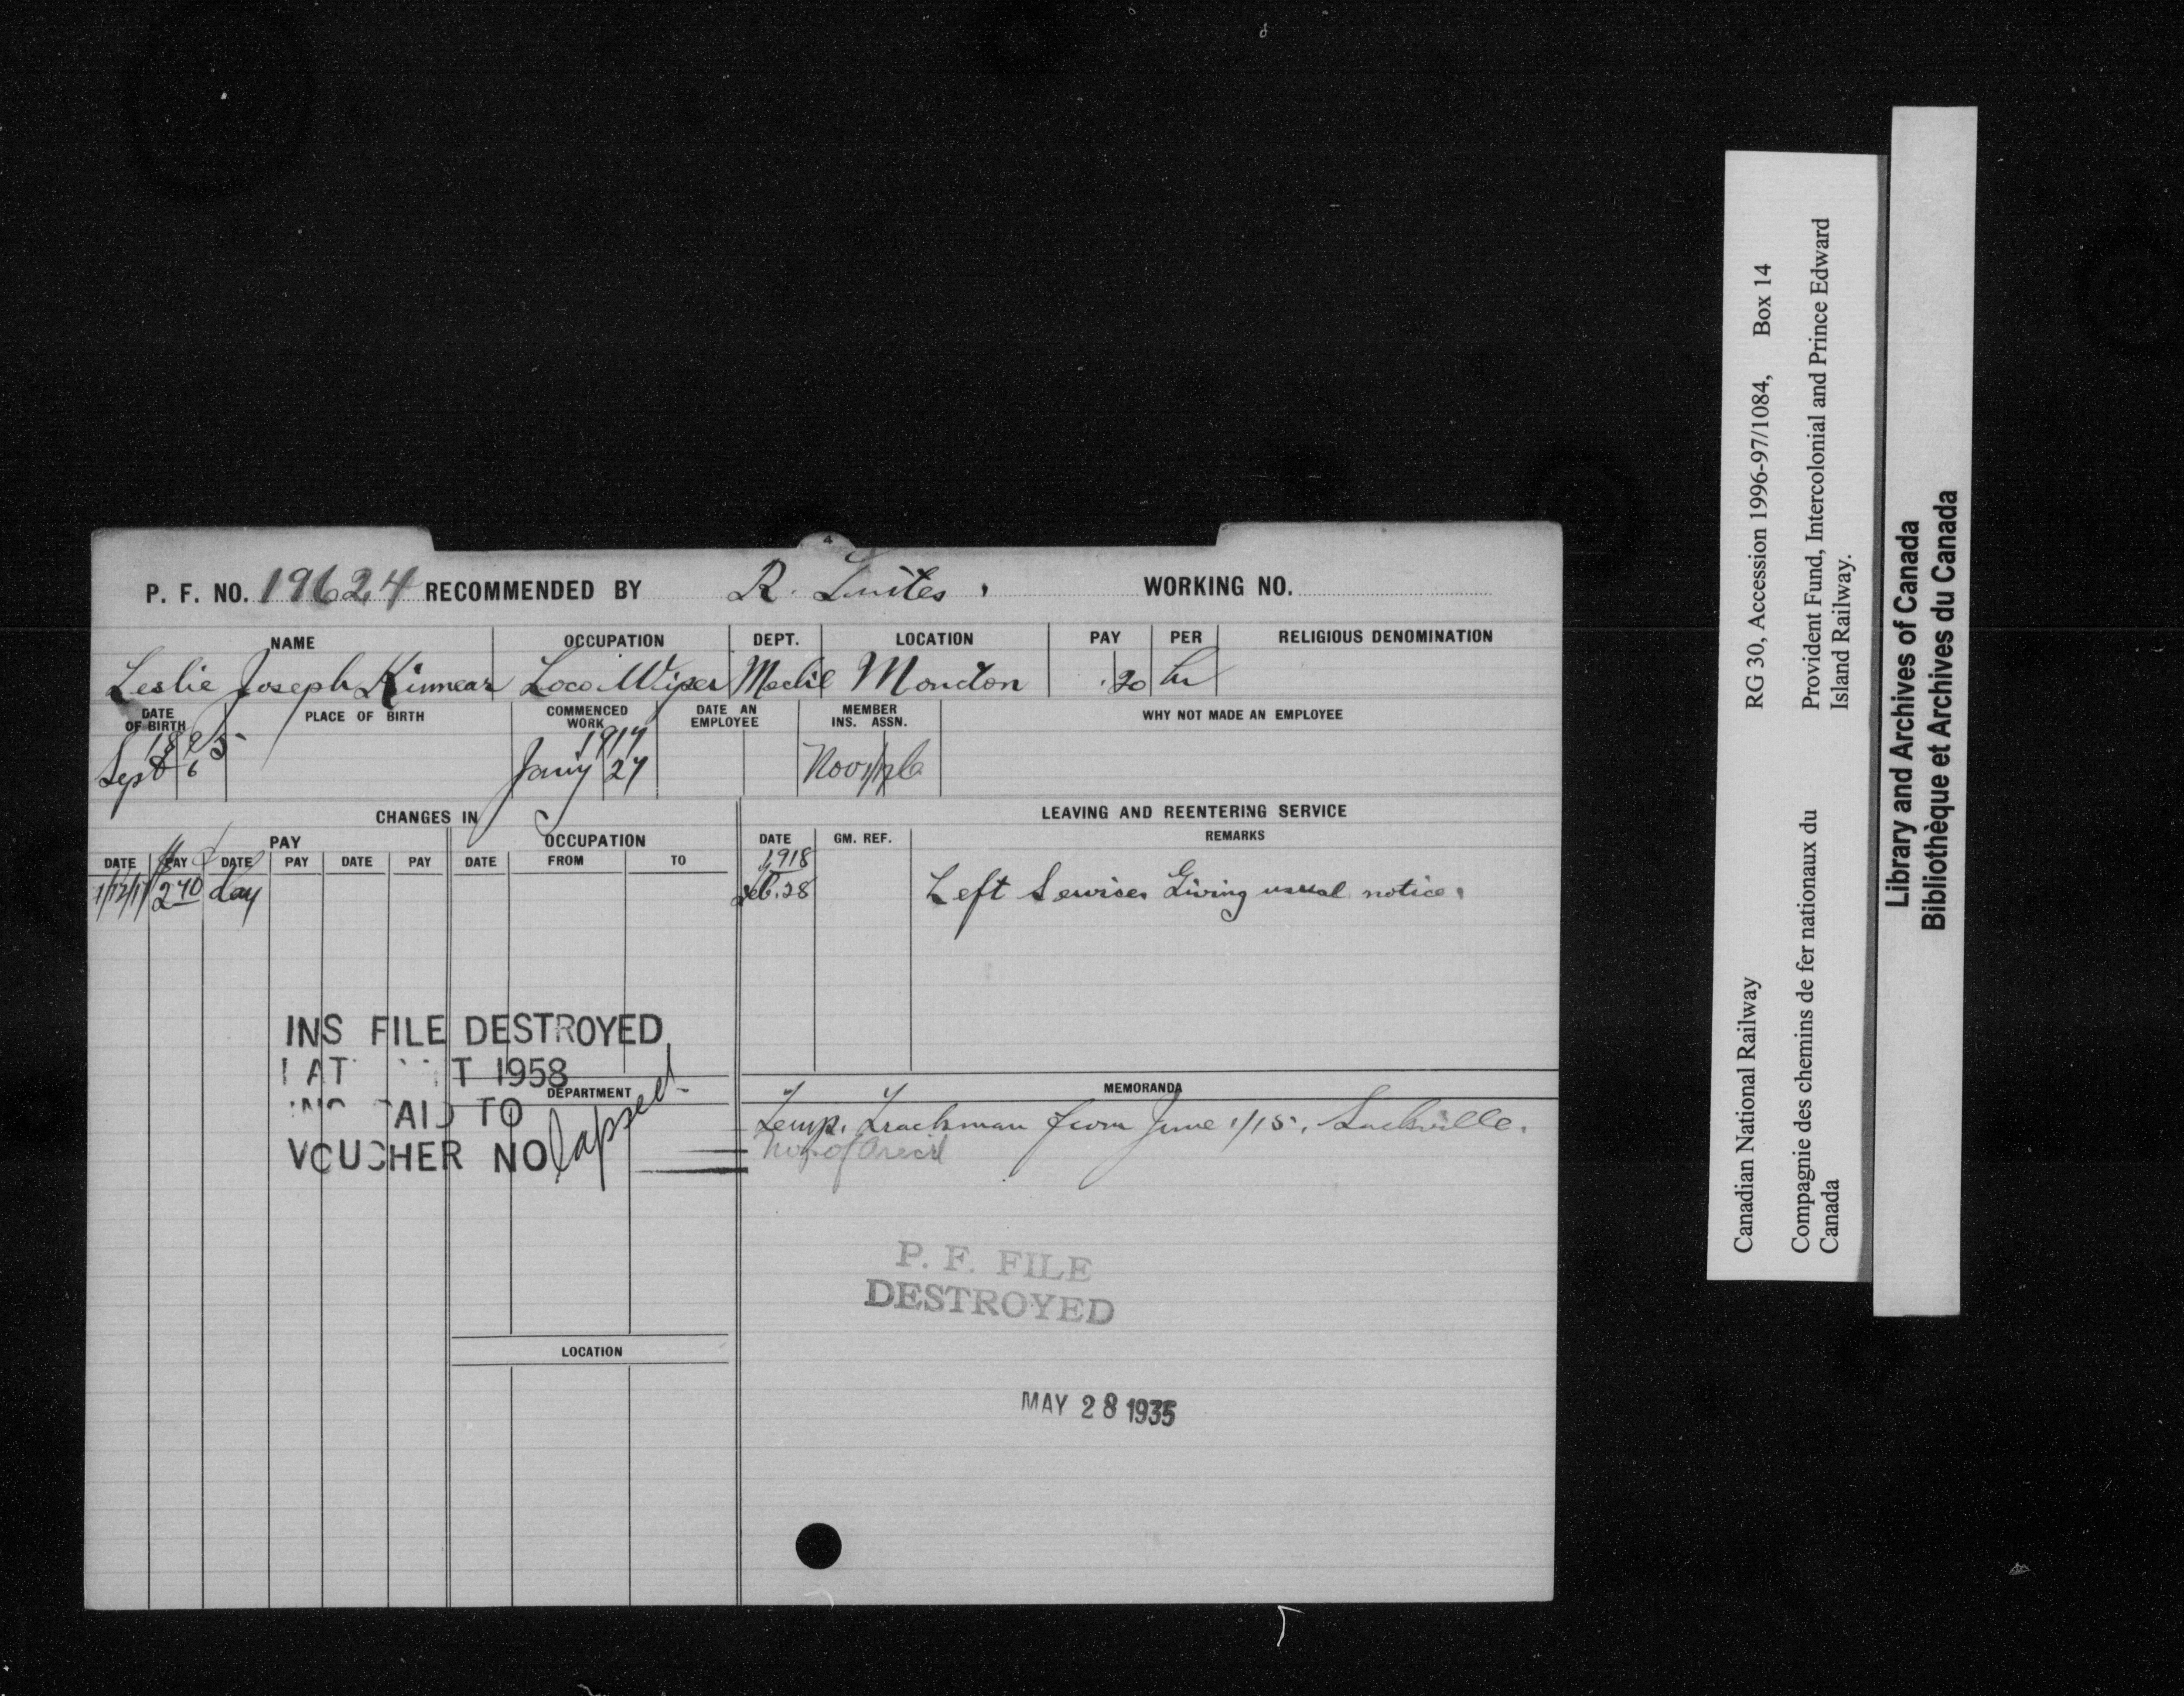 P. F. NO. 19624 RECOMMENDED BY R. Luites. WORKING NO.
NAME OCCUPATION DEPT. LOCATION PAY PER RELIGIOUS DENOMINATION
Leslie Joseph Kinnear Loco. Wiper Mechl Moncton .20 hr
DATE OF BIRTH PLACE OF BIRTH COMMENCED WORK DATE AN EMPLOYEE MEMBER INS. ASSN. WHY NOT MADE AN EMPLOYEE
1895 1917
Sept 6 Jany 27 Nov 1/17
CHANGES IN LEAVING AND REENTERING SERVICE
PAY OCCUPATION DATE GM. REF. REMARKS
DATE PAY DATE PAY DATE PAY DATE FROM TO
1918
1/12/17 $2.70 day Feb. 28 Left Service Giving usual notice.
INS FILE DESTROYED
T 1958
DEPARTMENT MEMORANDA
TO
Temp. Trackman from June 1/15. Sackville.
VOUCHER NO lapsed
P. F. FILE
DESTROYED
LOCATION
MAY 28 1935
Canadian National Railway RG 30, Accession 1996-97/1084, Box 14
Compagnie des chemins de fer nationaux du Canada
Provident Fund, Intercolonial and Prince Edward Island Railway.
Library and Archives of Canada
Bibliothèque et Archives du Canada